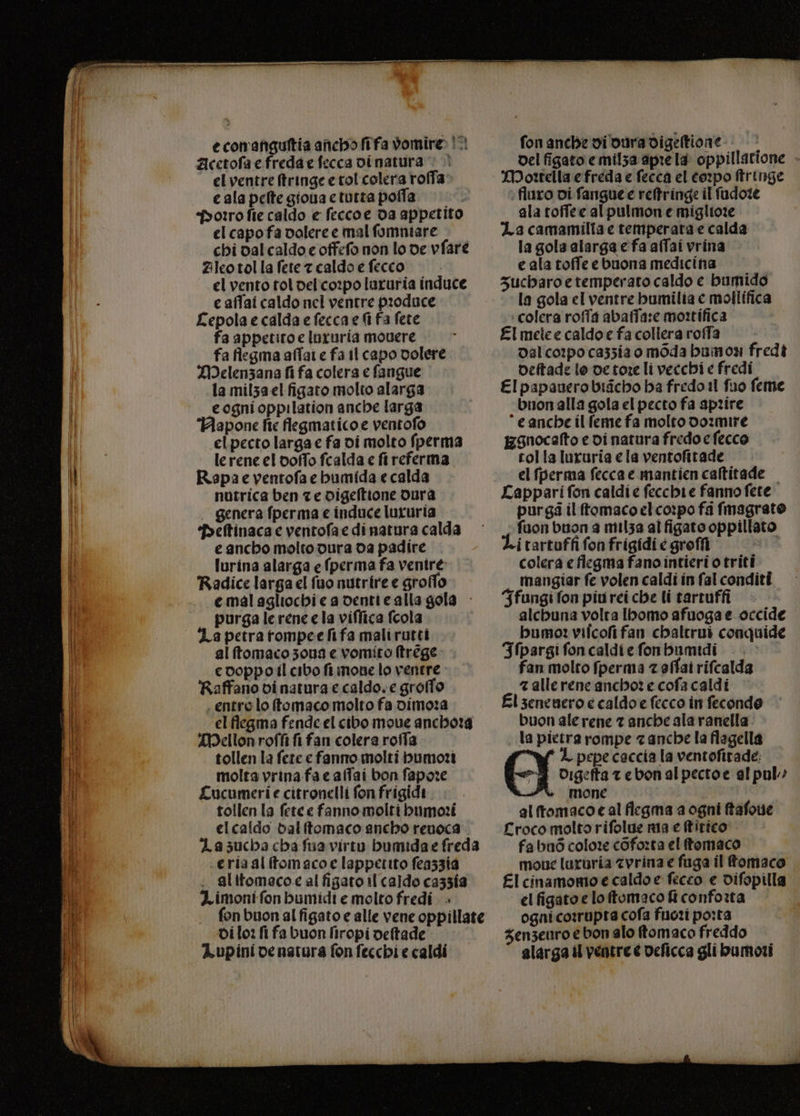 e con angustia ancho si fa vomire
Acetosa e freda e secca di natura
el ventre stringe e tol colera rossa
e ala peste gioua e tutta possa
Porro sie caldo e secco e da appetito
el capo fa dolere e mal somniare
chi dal caldo e offeso non lo de vsare
Aleo tol la sete ⁊ caldo e secco
el vento tol del corpo luxuria induce
e assai caldo nel ventre produce
Cepola e calda e secca e si fa sete
fa appetito e luxuria mouere
fa flegma assai e fa il capo dolere
Melenzana si fa colera e sangue
la milza el figato molto alarga
e ogni oppilation anche larga
Napone sie flegmatico e ventoso
el pecto larga e fa di molto sperma
le rene el dosso scalda e si referma
Rapa e ventosa e humida e calda
nutrica ben ⁊ e digestione dura
genera sperma e induce luxuria
Pestinaca e ventosa e di natura calda
e ancho molto dura da padire
lurina alarga e sperma fa venire
Radice larga el suo nutrire e grosso
e mal agliochi e a denti e alla gola
purga le rene e la vissica scola
La petra rompe e si fa mali rutti
al stomaco zoua e vomito strēge
e doppo il cibo si moue lo ventre
Raffano di natura e caldo. e grosso
entro lo stomaco molto fa dimora
el flegma fende el cibo moue anchora
Mellon rossi si fan colera rossa
tollen la sete e fanno molti humori
molta vrina fa e assai bon sapore
Cucumeri e citronelli son frigidi
tollen la sete e fanno molti humori
el caldo dal stomaco ancho reuoca
La zucha cha sua virtu humida e freda
e ria al stomaco e lappetito feazzia
al stomaco e al figato il caldo cazzia
Limoni son humidi e molto fredi
son buon al figato e alle vene oppillate
di lor si fa buon siropi destade
Lupini de natura son secchi e caldi
son anche di dura digestione
del figato e milza apre la oppillatione
Mortella e freda e secca el corpo stringe
fluxo di sangue e restringe il sudore
ala tosse e al pulmon e migliore
La camamilla e temperata e calda
la gola alarga e fa assai vrina
e ala tosse e buona medicina
Zucharo e temperato caldo e humido
la gola el ventre humilia e mollifica
colera rossa abassare mortifica
El mele e caldo e fa collera rossa
dal corpo cazzia o mōda humori fredi
destade lo de tore li vecchi e fredi
El papauero biācho ha fredo il suo seme
buon alla gola el pecto fa aprire
e anche il seme fa molto dormire
Egnocasto e di natura fredo e secco
tol la luxuria e la ventositade
el sperma secca e mantien castitade
Cappari son caldi e secchi e fanno sete
purgā il stomaco el corpo fā smagrato
suon buon a milza al figato oppillato
Li tartuffi son frigidi e grossi
colera e flegma fano intieri o triti
mangiar se volen caldi in sal conditi
Ifungi son piu rei che li tartuffi
alchuna volta lhomo afuoga e occide
humor viscosi fan chaltrui conquide
Ispargi son caldi e son humidi
fan molto sperma ⁊ assai riscalda
⁊ alle rene anchor e cosa caldi
El zeneuero e caldo e secco in secondo
buon ale rene ⁊ anche ala ranella
la pietra rompe ⁊ anche la flagella
EL pepe caccia la ventositade
digesta ⁊ e bon al pecto e al pul
mone
al stomaco e al flegma a ogni stasoue
Croco molto risolue ma e stitico
fa buō colore cōforta el stomaco
moue luxuria ⁊vrina e fuga il stomaco
El cinamomo e caldo e secco e disopilla
el figato e lo stomaco si conforta
ogni corrupta cosa fuori porta
Zenzeuro e bon alo stomaco freddo
alarga il ventre e desicca gli humori